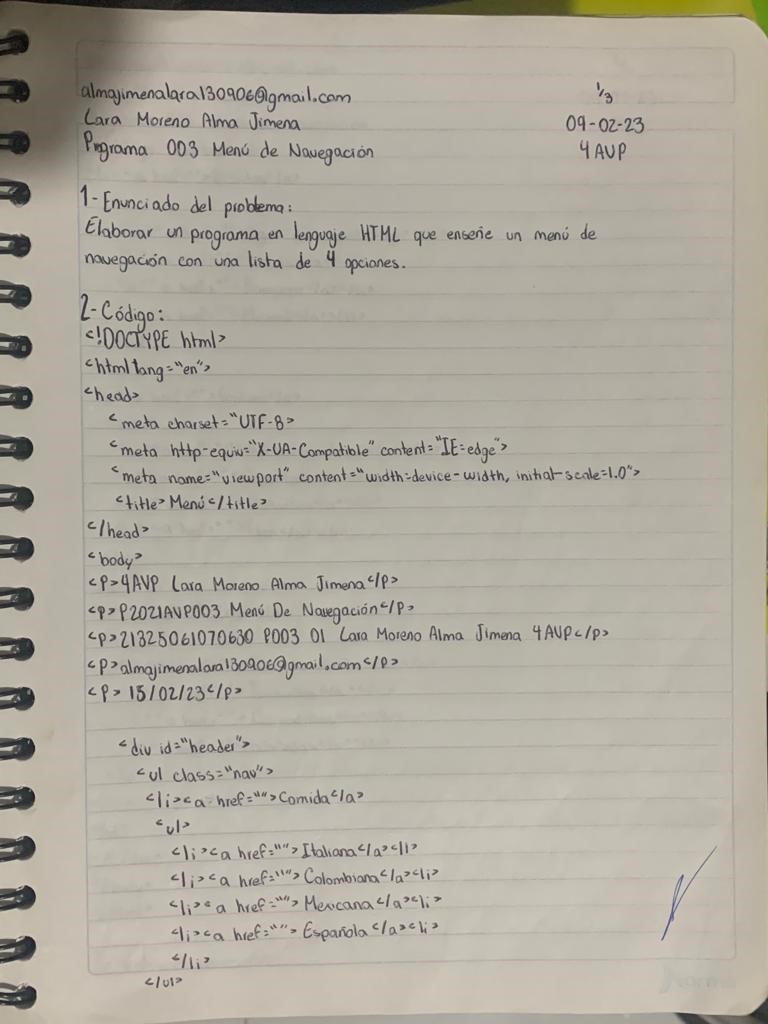 almajimenalara130906@gmail.com
1/3
Lara Moreno Alma Jimena
09-02-23
Programa 003 Menú de Navegación
4 AVP
1- Enunciado del problema:
Elaborar un programa en lenguaje HTML que enseñe un menú de
navegación con una lista de 4 opciones.
2- Código:
<!DOCTYPE html>
<html lang="en">
<head>
<meta charset="UTF-8>
<meta http-equiv="X-UA-Compatible" content="IE=edge">
<meta name="viewport" content="width=device-width, initial-scale=1.0">
<title> Menú </title>
</head>
<body>
<p>4AVP Lara Moreno Alma Jimena</p>
<p>P2021AVP003 Menú De Navegación</p>
<p>21325061070630 P003 01 Lara Moreno Alma Jimena 4AVP</p>
<p>almajimenalara130906@gmail.com</p>
<p> 15/02/23</p>
<div id="header">
<ul class="nav">
<li><a href="">Comida</a>
<ul>
<li><a href="">Italiana</a><li>
<li><a href="">Colombiana</a><li>
<li><a href="">Mexicana</a><li>
<li><a href="">Española</a><li>
</li>
</ul>
Norma